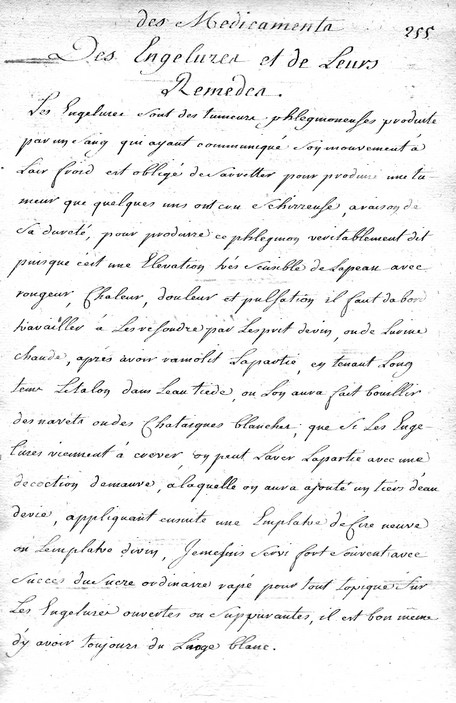 des Medicaments
255
Des Engelures et de Leurs
Remedes.
Les Engelures sont des tumeurs phlegmoneuses produite
par un sang qui ayant communiqué son mouvement à
Lair froid est obligé de sarretter pour produire une tu-
meur que quelques uns ont cru schirreuse, a raison de
sa dureté, pour produire ce phlegmon veritablement dit
puisque c'est une Elevation très sensible de Lapeau avec
rougeur, Chaleur, douleur et pulsation il faut dabord
travailler à Les resoudre par Lesprit devin, ou de Lurine
chaude, après avoir ramolit Lapartie, en tenant Long
tems Letalon dans Leau tiede, ou Lon aura fait bouillir
des navets ou des Chataignes blanches, que si Les Enge
lures viennent à crever, on peut Laver Lapartie avec une
decoction demauve, a laquelle on aura ajouté un tiers deau
devie, appliquant ensuite une Emplatre de Cire neuve
ou Lemplatre divin, Je me suis servi fort souvent avec
succès du sucre ordinaire rapé pour tout topique sur
Les Engelures ouvertes ou suppurantes, il est bon meme
dy avoir toujours du Linge blanc.